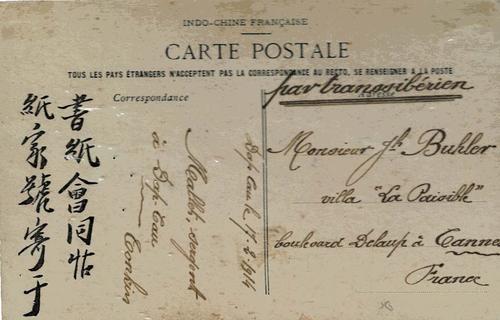 INDO-CHINE FRANÇAISE
CARTE POSTALE
TOUS LES PAYS ÉTRANGERS N'ACCEPTENT PAS LA CORRESPONDANCE AU RECTO, SE RENSEIGNER A LA POSTE
Correspondance
par transsibérien
Adresse
Monsieur Jh Buhler
villa "La Paisible"
boulevard Delaup à Cannes
France
Dap Cau le 17-2-1914
sergent
à Dap-Cau
Tonkin
書紙會同帖
紙家號寄于